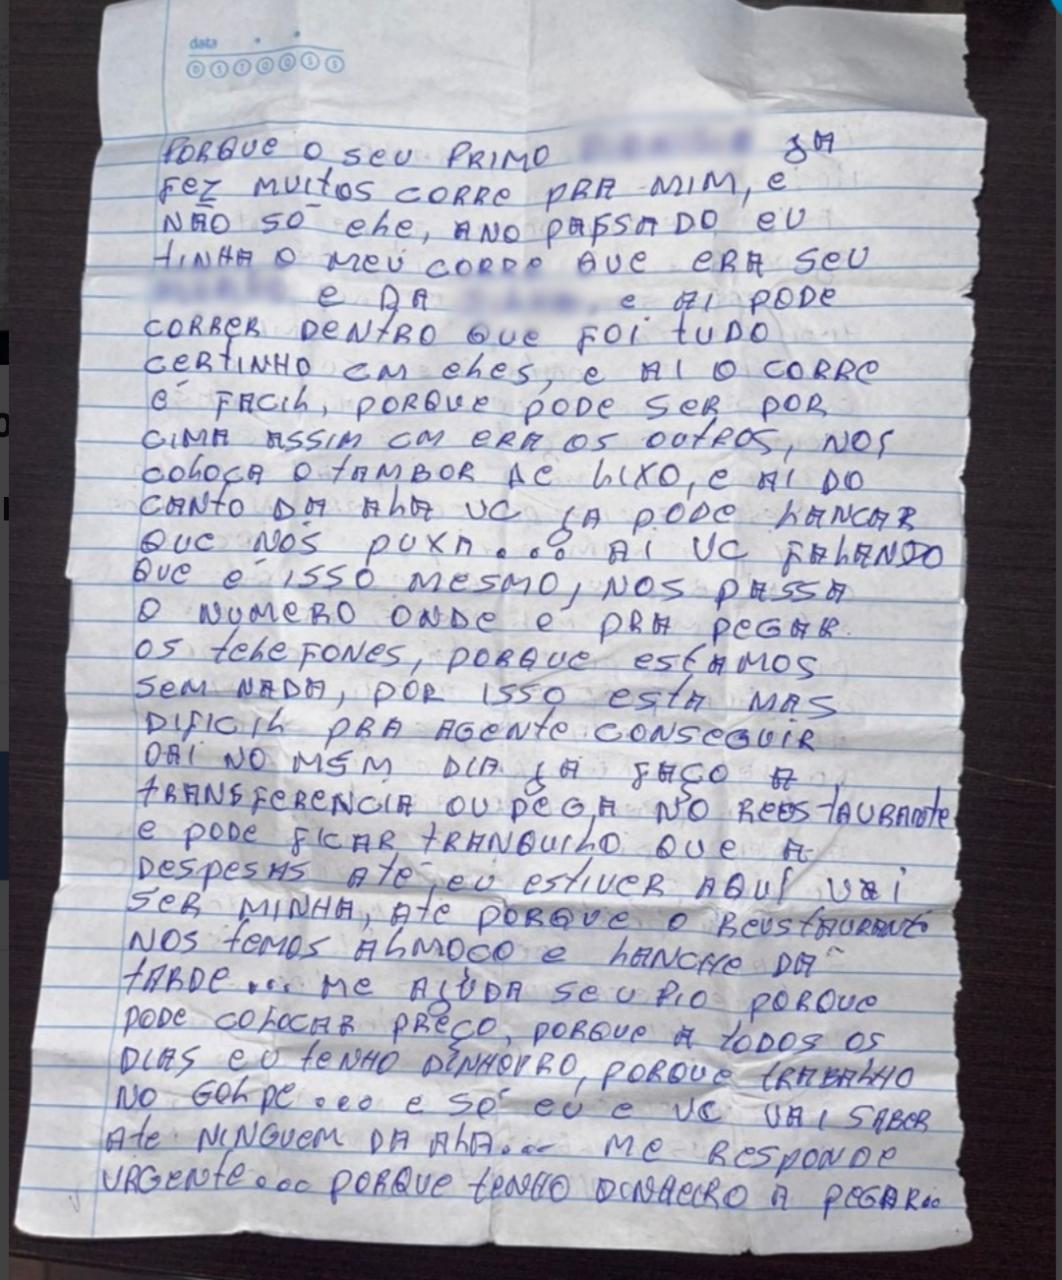 data
PORQUE O SEU PRIMO JA
FEZ MUITOS CORRE PRA MIM, E
NÃO SÓ ELE, ANO PASSADO EU
TINHA O MEU CORRE QUE ERA SEU
E DA , E AI PODE
CORRER DENTRO QUE FOI TUDO
CERTINHO CM ELES, E AI O CORRE
É FACIL, PORQUE PODE SER POR
CIMA ASSIM CM ERA OS OUTROS, NOS
COLOCA O TAMBOR DE LIXO, E AI DO
CANTO DA ALA VC JA PODE LANCAR
QUE NÓS PUXA... AI VC FALANDO
QUE É ISSO MESMO, NOS PASSA
O NUMERO ONDE E PRA PEGAR
OS TELEFONES, PORQUE ESTAMOS
SEM NADA, POR ISSO ESTA MAS
DIFICIL PRA AGENTE CONSEGUIR
DAI NO MSM DIA JA FAÇO A
TRANSFERENCIA OU PEGA NO REESTAURANTE
E PODE FICAR TRANQUILO QUE A
DESPESAS ATÉ EU ESTIVER AQUI VAI
SER MINHA, ATE PORQUE O REUSTAURANTE
NOS TEMOS ALMOCO E LANCHE DA
TARDE... ME AJUDA SEU PIO PORQUE
PODE COLOCAR PREÇO, PORQUE A TODOS OS
DIAS EU TENHO DINHEIRO, PORQUE TRABALHO
NO GOLPE... E SÓ EU E VC VAI SABER
ATE NINGUEM DA ALA... ME RESPONDE
URGENTE... PORQUE TENHO DINHEIRO A PEGAR...